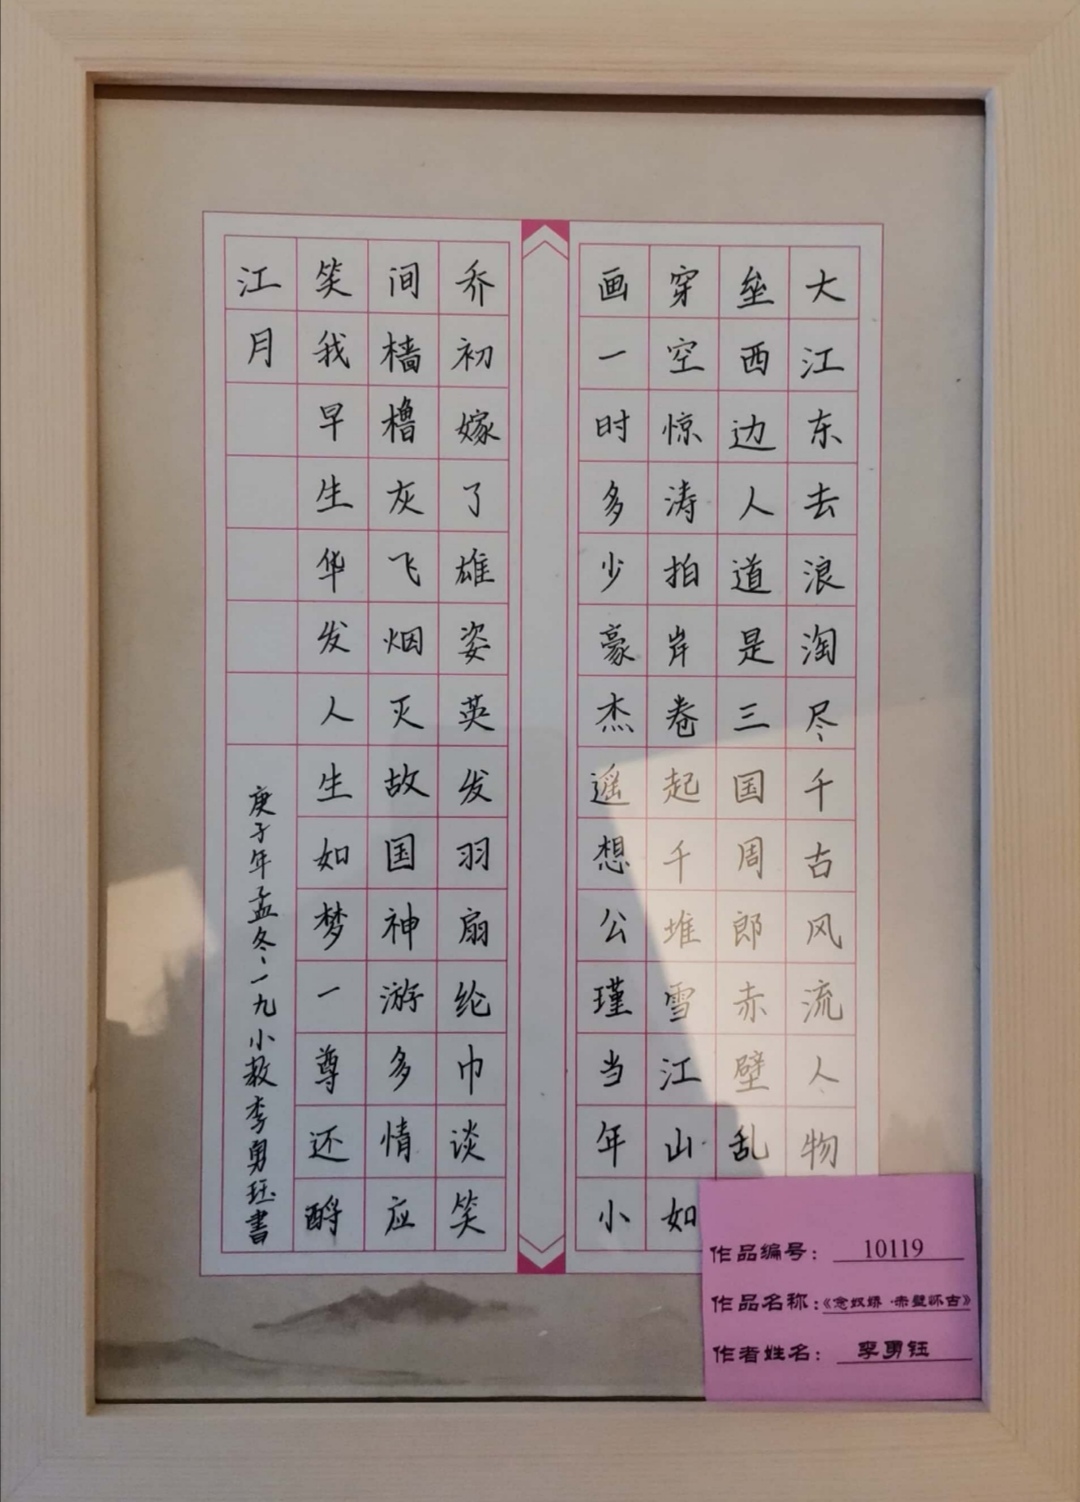 大江东去浪淘尽千古风流人物
垒西边人道是三国周郎赤壁乱
穿空惊涛拍岸卷起千堆雪江山如
画一时多少豪杰遥想公瑾当年小
乔初嫁了雄姿英发羽扇纶巾谈笑
间樯橹灰飞烟灭故国神游多情应
笑我早生华发人生如梦一尊还酹
江月
庚子年孟冬一九小教李勇珏書
作品编号：10119
作品名称：《念奴娇·赤壁怀古》
作者姓名：李勇钰